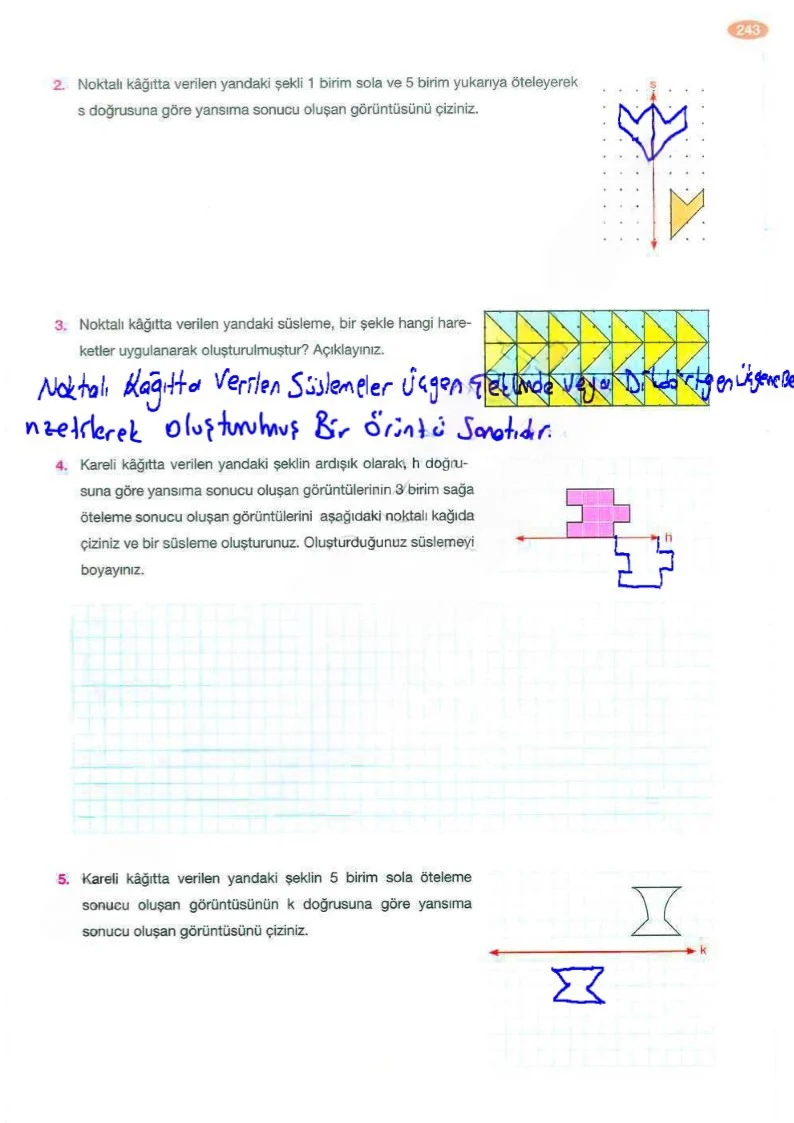 243
2. Noktalı kâğıtta verilen yandaki şekli 1 birim sola ve 5 birim yukarıya öteleyerek
s doğrusuna göre yansıma sonucu oluşan görüntüsünü çiziniz.
s
3. Noktalı kâğıtta verilen yandaki süsleme, bir şekle hangi hare-
ketler uygulanarak oluşturulmuştur? Açıklayınız.
Noktalı Kağıtta Verilen Süslemeler Üçgen Şeklinde veya Dikdörtgen Üçgene Be
nzetilerek oluşturulmuş Bir örüntü Sanatıdır.
4. Kareli kâğıtta verilen yandaki şeklin ardışık olarak, h doğru-
suna göre yansıma sonucu oluşan görüntülerinin 3 birim sağa
öteleme sonucu oluşan görüntülerini aşağıdaki noktalı kağıda
çiziniz ve bir süsleme oluşturunuz. Oluşturduğunuz süslemeyi
boyayınız.
h
5. Kareli kâğıtta verilen yandaki şeklin 5 birim sola öteleme
sonucu oluşan görüntüsünün k doğrusuna göre yansıma
sonucu oluşan görüntüsünü çiziniz.
k